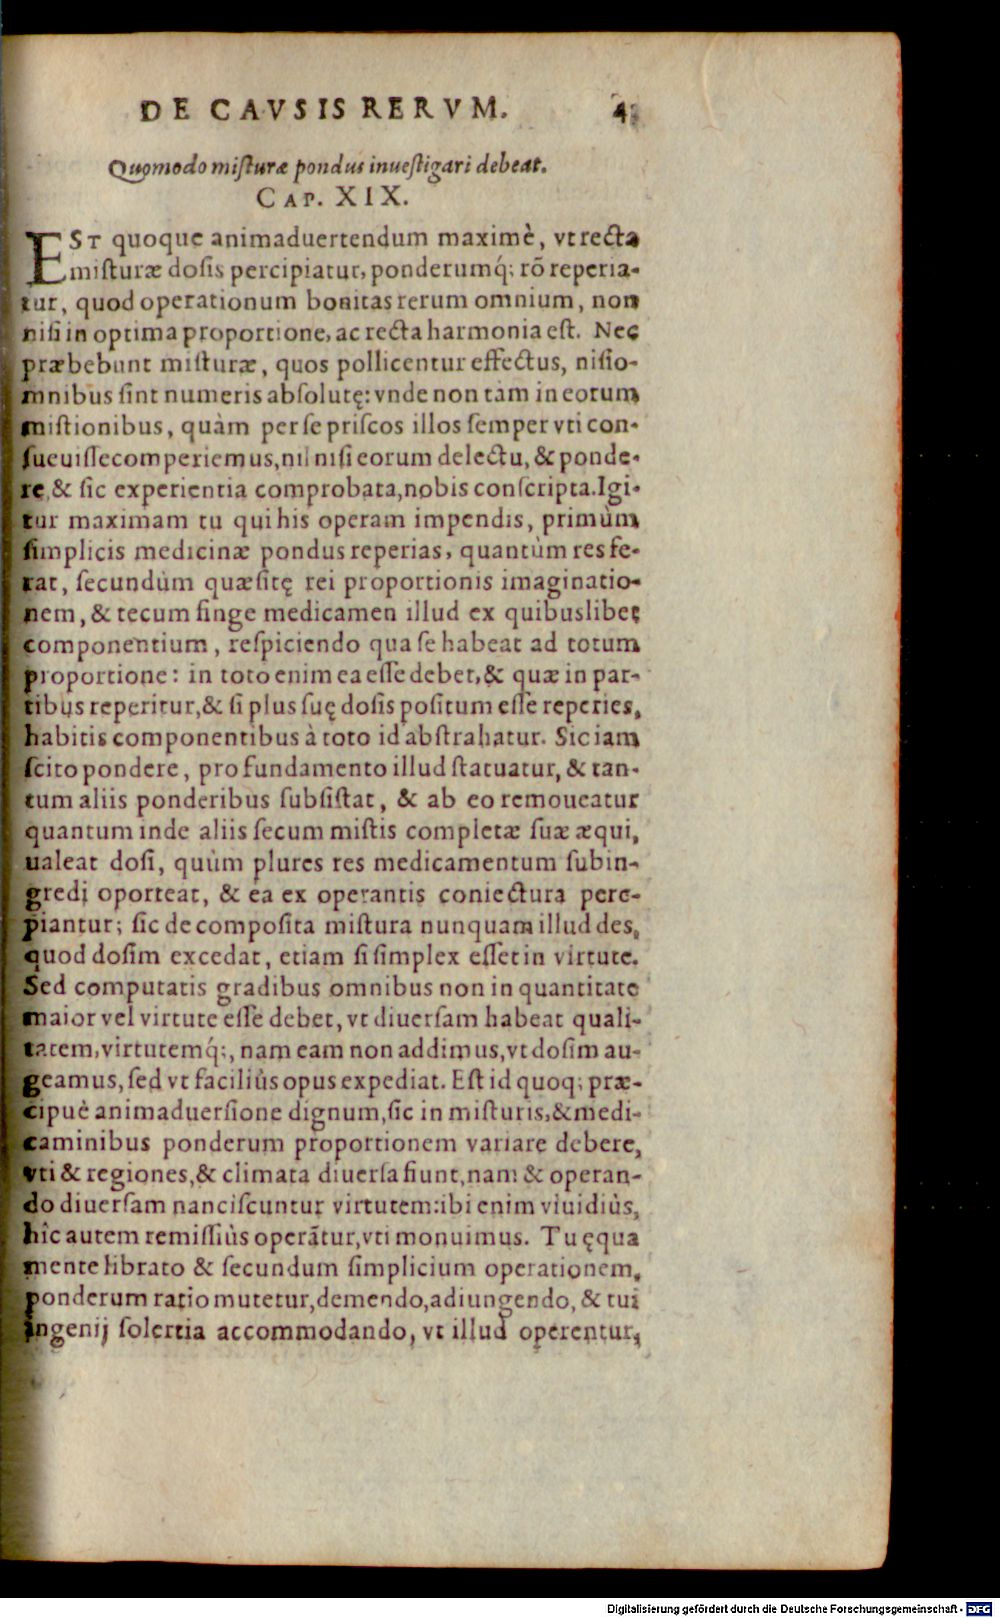 DE CAVSIS RERVM. 4
Quomodo misturæ pondus inuestigari debeat.
CAP. XIX.
EST quoque animaduertendum maximè, vt recta
misturæ dosis percipiatur, ponderumq́; rõ reperia-
tur, quod operationum bonitas rerum omnium, non
nisi in optima proportione, ac recta harmonia est. Nec
præbebunt misturæ, quos pollicentur effectus, nisi o-
mnibus sint numeris absolutę: vnde non tam in eorum
mistionibus, quàm per se priscos illos semper vti con-
sueuisse comperiemus, nil nisi eorum delectu, & ponde-
re, & sic experientia comprobata, nobis conscripta. Igi-
tur maximam tu qui his operam impendis, primùm
simplicis medicinæ pondus reperias, quantùm res fe-
rat, secundùm quæsitę rei proportionis imaginatio-
nem, & tecum finge medicamen illud ex quibuslibet
componentium, respiciendo qua se habeat ad totum
proportione: in toto enim ea esse debet, & quæ in par-
tibus reperitur, & si plus suę dosis positum esse reperies,
habitis componentibus à toto id abstrahatur. Sic iam
scito pondere, pro fundamento illud statuatur, & tan-
tum aliis ponderibus subsistat, & ab eo remoueatur
quantum inde aliis secum mistis completæ suæ æqui,
ualeat dosi, quùm plures res medicamentum subin-
gredi oporteat, & ea ex operantis coniectura perci-
piantur; sic de composita mistura nunquam illud des,
quod dosim excedat, etiam si simplex esset in virtute.
Sed computatis gradibus omnibus non in quantitate
maior vel virtute esse debet, vt diuersam habeat quali-
tatem, virtutemq́;, nam eam non addimus, vt dosim au-
geamus, sed vt faciliùs opus expediat. Est id quoq; præ-
cipuè animaduersione dignum, sic in misturis, & medi-
caminibus ponderum proportionem variare debere,
vti & regiones, & climata diuersa fiunt, nam & operan-
do diuersam nanciscuntur virtutem: ibi enim viuidiùs,
hîc autem remissiùs operãtur, vti monuimus. Tu ęqua
mente librato & secundum simplicium operationem,
ponderum ratio mutetur, demendo, adiungendo, & tui
ingenij solertia accommodando, vt illud operentur,
Digitalisierung gefördert durch die Deutsche Forschungsgemeinschaft - DFG